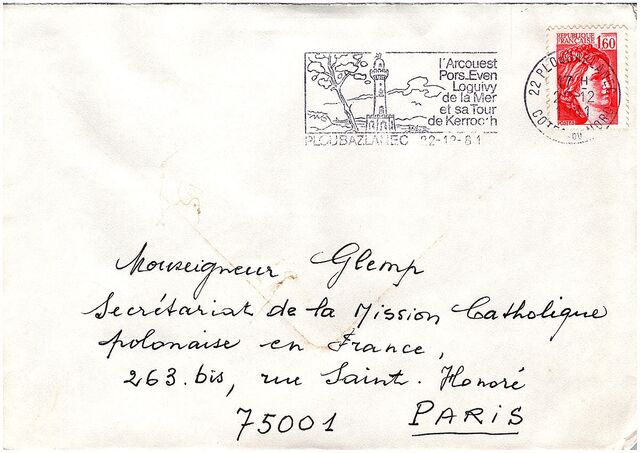 l'Arcouest
Pors-Even
Loguivy
de la Mer
et sa Tour
de Kerroc'h
PLOUBAZLANEC 22-12-81
REPUBLIQUE
FRANÇAISE 1,60
22 PLOUBAZLANEC
17 H
22-12
COTES DU NORD
POSTES
Monseigneur Glemp
Secrétariat de la Mission Catholique
polonaise en France,
263.bis, rue Saint-Honoré
75001 PARIS